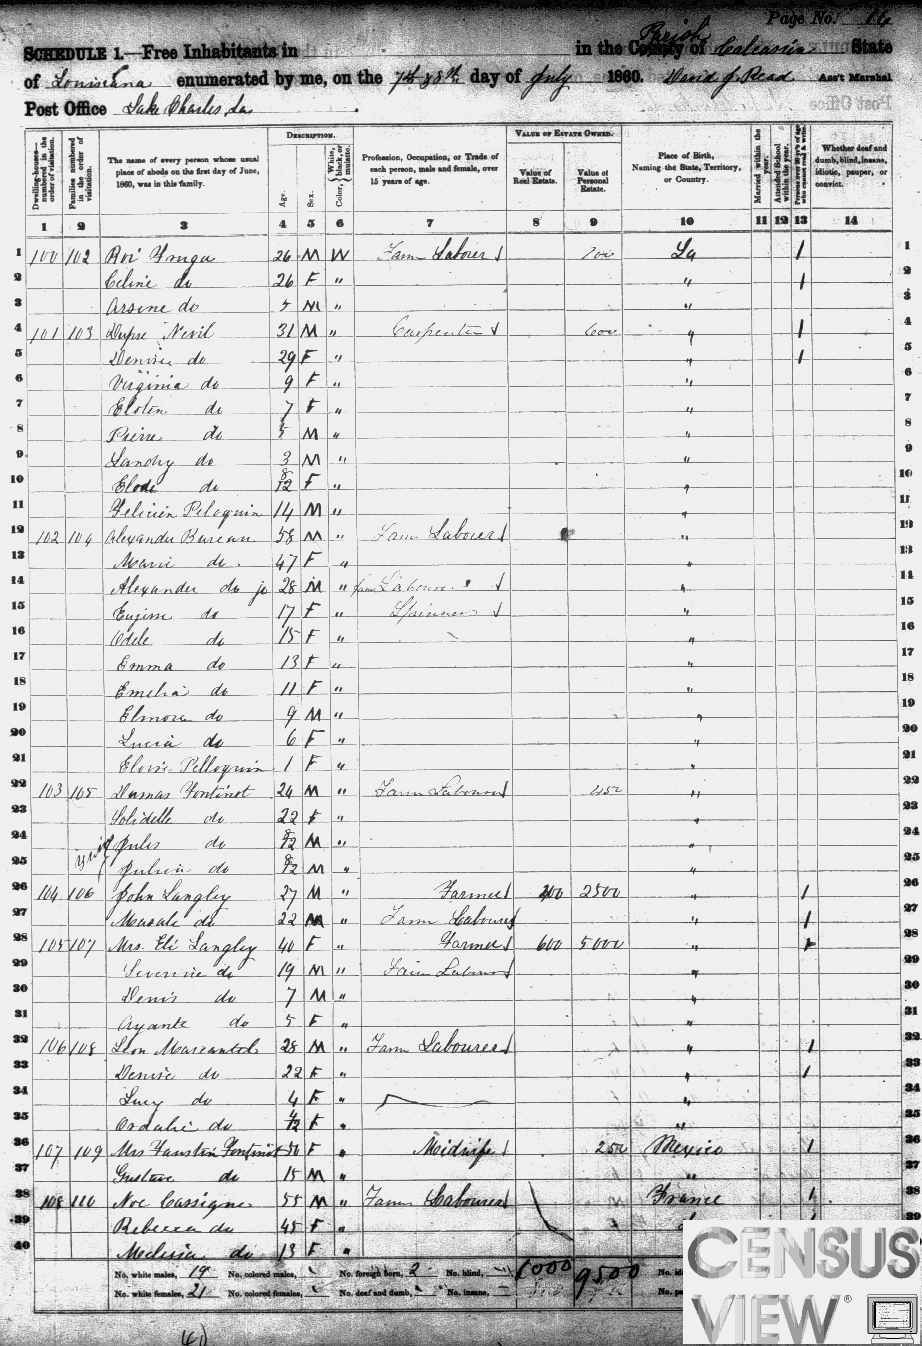 Page No. 16
SCHEDULE 1.—Free Inhabitants in in the County of Parish Calcasieu State
of Louisiana enumerated by me, on the 7th & 8th day of July 1860. David J. Read Ass't Marshal
Post Office Lake Charles, La
Dwelling-houses—numbered in the order of visitation.
Families numbered in the order of visitation.
The name of every person whose usual place of abode on the first day of June, 1860, was in this family.
DESCRIPTION.
Age.
Sex.
Color, White, black, or mulatto.
Profession, Occupation, or Trade of each person, male and female, over 15 years of age.
VALUE OF ESTATE OWNED.
Value of Real Estate.
Value of Personal Estate.
Place of Birth, Naming the State, Territory, or Country.
Married within the year.
Attended School within the year.
Persons over 20 y'rs of age who cannot read & write.
Whether deaf and dumb, blind, insane, idiotic, pauper, or convict.
1 2 3 4 5 6 7 8 9 10 11 12 13 14
1 100 102 26 M W Farm Labourer 100 La 1 1
2 Celine do 26 F " " 1 2
3 Arsene do 5 M " " 3
4 101 103 Dupre Nevil 31 M " Carpenter 600 " 1 4
5 Denise do 29 F " " 1 5
6 Virginia do 9 F " " 6
7 do 7 F " " 7
8 Pierre do 5 M " " 8
9 Landry do 3 M " " 9
10 Elode do 8/12 F " " 10
11 Felicien Peloquin 14 M " " 11
12 102 104 Alexander Bureau 58 M " Farm Labourer " 12
13 Marie do 47 F " " 13
14 Alexander do jr 28 M " farm Labourer " 14
15 do 17 F " Spinner " 15
16 Odele do 15 F " " 16
17 Emma do 13 F " " 17
18 Emelia do 11 F " " 18
19 Elmora do 9 M " " 19
20 Lucia do 6 F " " 20
21 Eloise Pelloquin 1 F " " 21
22 103 105 Dumas Fontinot 24 M " Farm Labourer 450 " 22
23 Solidelle do 22 F " " 23
24 Jules do 8/12 M " " 24
25 Julien do 8/12 M " " 25
26 104 106 John Langley 27 M " Farmer 400 2500 " 1 26
27 do 22 M " Farm Labourer " 1 27
28 105 107 Mrs. Eli Langley 40 F " Farmer 600 5000 " 1 28
29 Severine do 19 M " Farm Labourer " 29
30 Denis do 7 M " " 30
31 Ayante do 5 F " " 31
32 106 108 Leon 28 M " Farm Labourer " 1 32
33 Denise do 22 F " " 1 33
34 Lucy do 4 F " " 34
35 do 4/12 F " " 35
36 107 109 Mrs Faustin Fontinot 50 F " Midwife 250 Mexico 1 36
37 Gustave do 15 M " " 37
38 108 110 Noe Cassigne 55 M " Farm Labourer France 1 38
39 Rebecca do 45 F " 39
40 Melissa do 13 F "
No. white males, 19 No. colored males, No. foreign born, 2 No. blind, 1000 9500
No. white females, 21 No. colored females, No. deaf and dumb, No. insane,
CENSUS
VIEW®